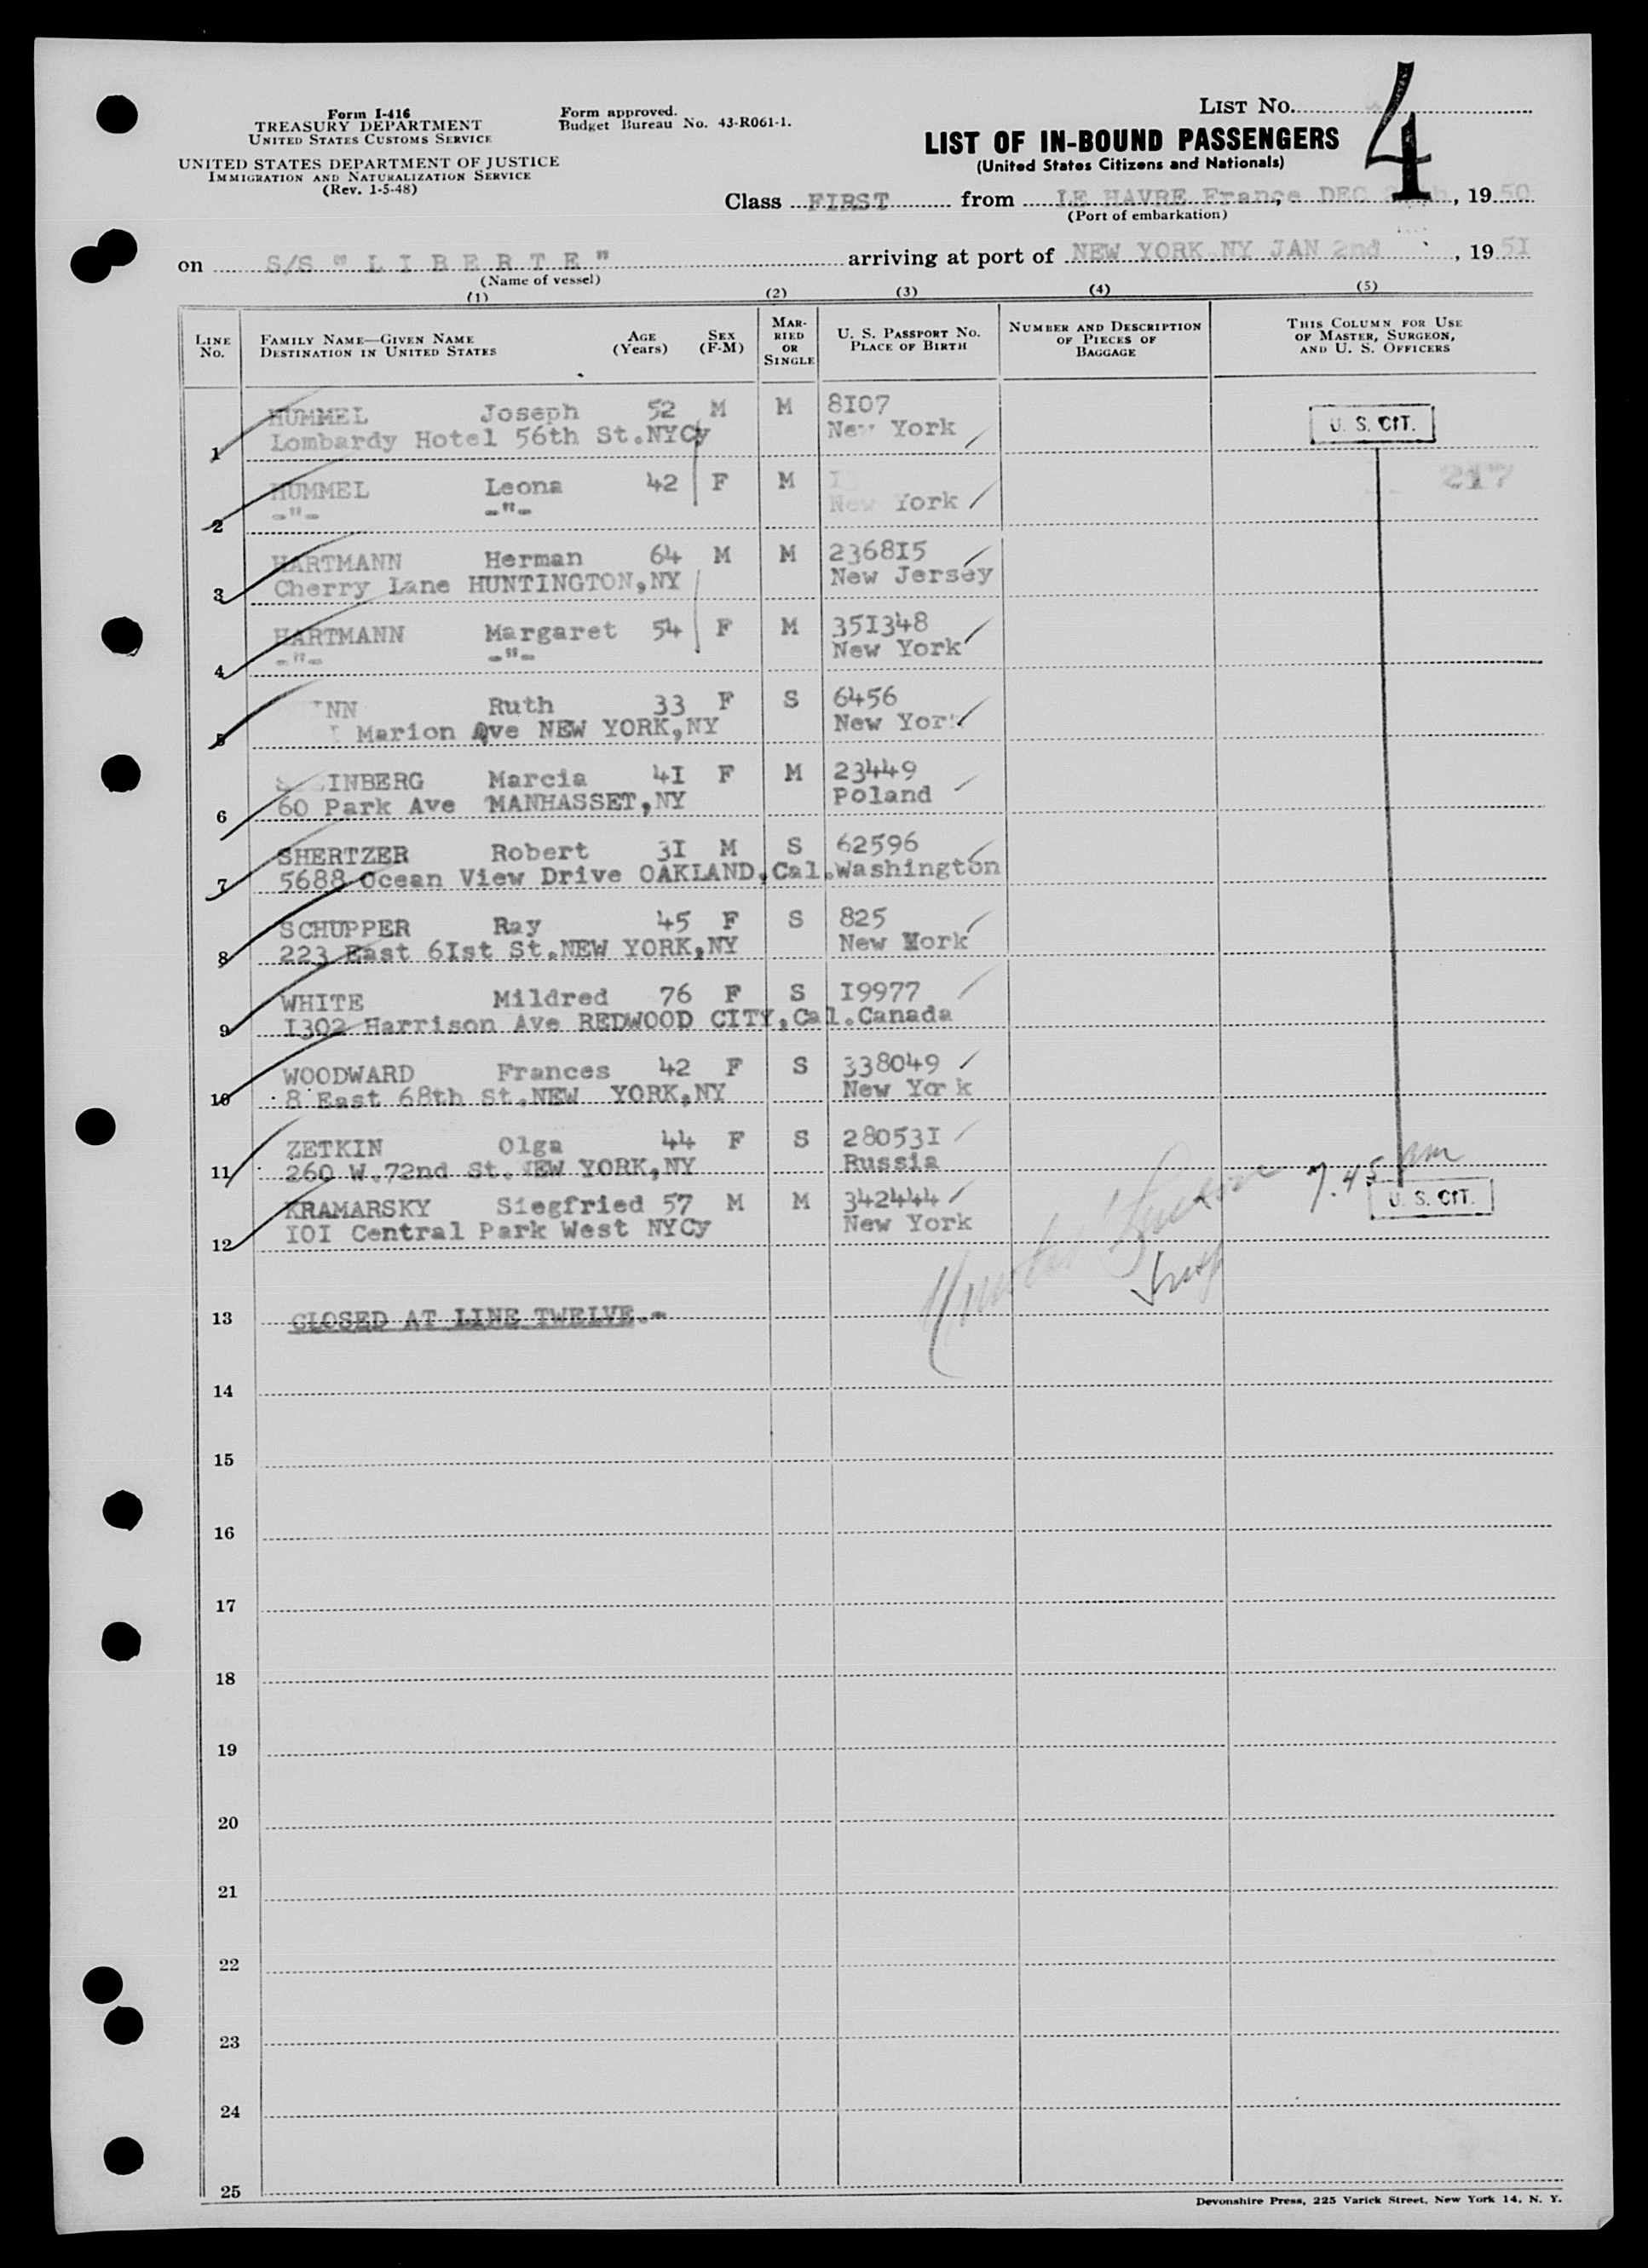 Form I-416
TREASURY DEPARTMENT
UNITED STATES CUSTOMS SERVICE
UNITED STATES DEPARTMENT OF JUSTICE
IMMIGRATION AND NATURALIZATION SERVICE
(Rev. 1-5-48)
Form approved.
Budget Bureau No. 43-R061-1.
LIST No. 4
LIST OF IN-BOUND PASSENGERS
(United States Citizens and Nationals)
Class FIRST from LE HAVRE France, DEC , 19 50
(Port of embarkation)
on S/S "L I B E R T E" arriving at port of NEW YORK.NY JAN 2nd , 19 51
(Name of vessel)
(1) (2) (3) (4) (5)
LINE No. FAMILY NAME—GIVEN NAME DESTINATION IN UNITED STATES AGE (Years) SEX (F-M) MARRIED OR SINGLE U. S. PASSPORT No. PLACE OF BIRTH NUMBER AND DESCRIPTION OF PIECES OF BAGGAGE THIS COLUMN FOR USE OF MASTER, SURGEON, AND U. S. OFFICERS
HUMMEL Joseph 52 M M 8I07
1 Lombardy Hotel 56th St.NYCy New York U. S. CIT.
HUMMEL Leona 42 F M 217
2 -"- -"- New York
HARTMANN Herman 64 M M 2368I5
3 Cherry Lane HUNTINGTON,NY New Jersey
HARTMANN Margaret 54 F M 35I348
4 -"- -"- New York
NN Ruth 33 F S 6456
5 Marion Ave NEW YORK,NY New Yor
INBERG Marcia 4I F M 23449
6 60 Park Ave MANHASSET,NY Poland
SHERTZER Robert 3I M S 62596
7 5688 Ocean View Drive OAKLAND,Cal.Washington
SCHUPPER Ray 45 F S 825
8 223 East 6Ist St.NEW YORK,NY New York
WHITE Mildred 76 F S I9977
9 I302 Harrison Ave REDWOOD CITY,Cal.Canada
WOODWARD Frances 42 F S 338049
10 8 East 68th St.NEW YORK,NY New Yo k
ZETKIN Olga 44 F S 28053I
11 260 W.72nd St.NEW YORK,NY Russia 7.45 am
KRAMARSKY Siegfried 57 M M 342444 U. S. CIT.
12 IOI Central Park West NYCy New York
Insp
13 CLOSED AT LINE TWELVE.-
14
15
16
17
18
19
20
21
22
23
24
25
Devonshire Press, 225 Varick Street, New York 14, N. Y.